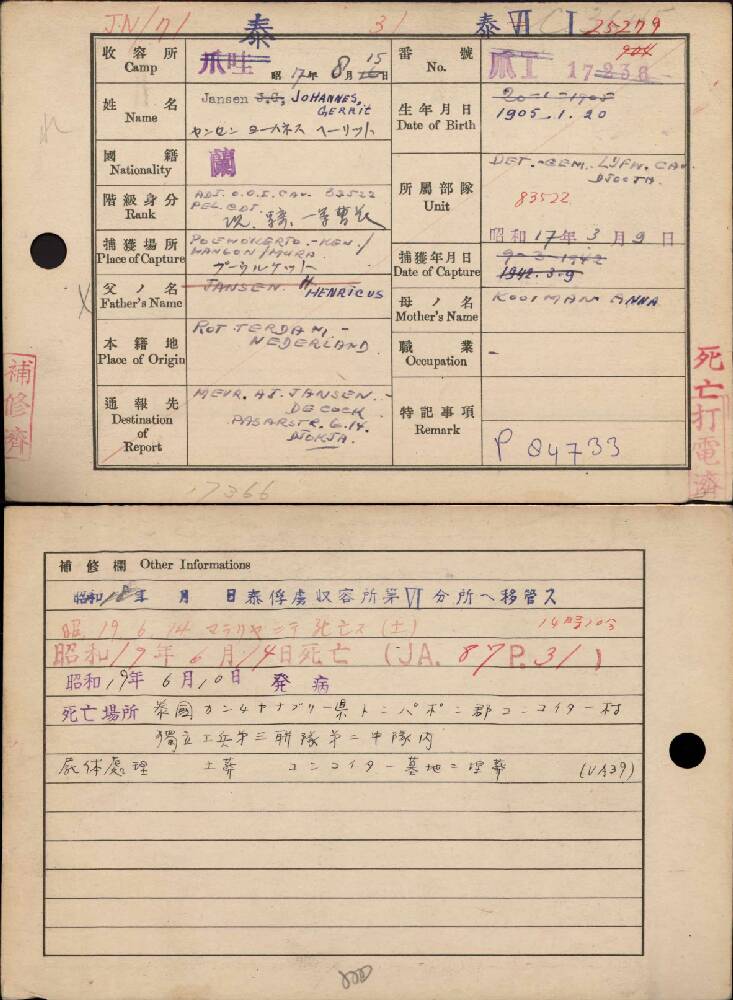 J.N/71
泰
31
泰 VI
25279
收容所 Camp
爪哇
昭 17年 8月 15日
番號 No.
爪I 17238
904
姓名 Name
Jansen J.G, JOHANNES, GERRIT
ヤンセン ヨーハネス ヘーリット
生年月日 Date of Birth
20-1-1905
1905.1.20
國籍 Nationality
蘭
所屬部隊 Unit
83522
階級身分 Rank
ADJ. O.O.I. CAV. 83522
捕獲場所 Place of Capture
POEWOKERTO.-KEU./
プールワルケット
捕獲年月日 Date of Capture
昭和17年3月9日
9-3-1942
1942.3.9
父ノ名 Father's Name
JANSEN. H
HENRICUS
母ノ名 Mother's Name
KOOIMAN ANNA
本籍地 Place of Origin
ROTTERDAM,-
NEDERLAND
職業 Occupation
-
通報先 Destination of Report
MEVR. A.J. JANSEN.-
DE COCK
PASARSTR. 6.14.
DJOKJA.
特記事項 Remark
P 84733
補修濟
死亡打電濟
17366
補修欄 Other Informations
昭和18年 月 日泰俘虜収容所第VI分所ヘ移管ス
昭19.6.14 マラリヤニテ死亡ス(土) 14時10分
昭和19年6月14日死亡 (JA. 87 P.31)
昭和19年6月10日 発病
死亡場所 泰國カンチャナブリー県トンパポン郡コンコイター村
獨立工兵第三聯隊第二中隊内
屍体處理 土葬 コンコイター墓地ニ埋葬 (VA39)